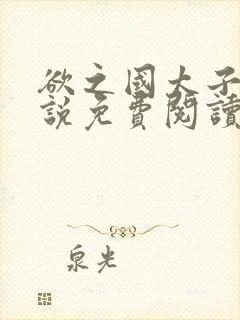 欲之國大子
說免費閱讀
泉光